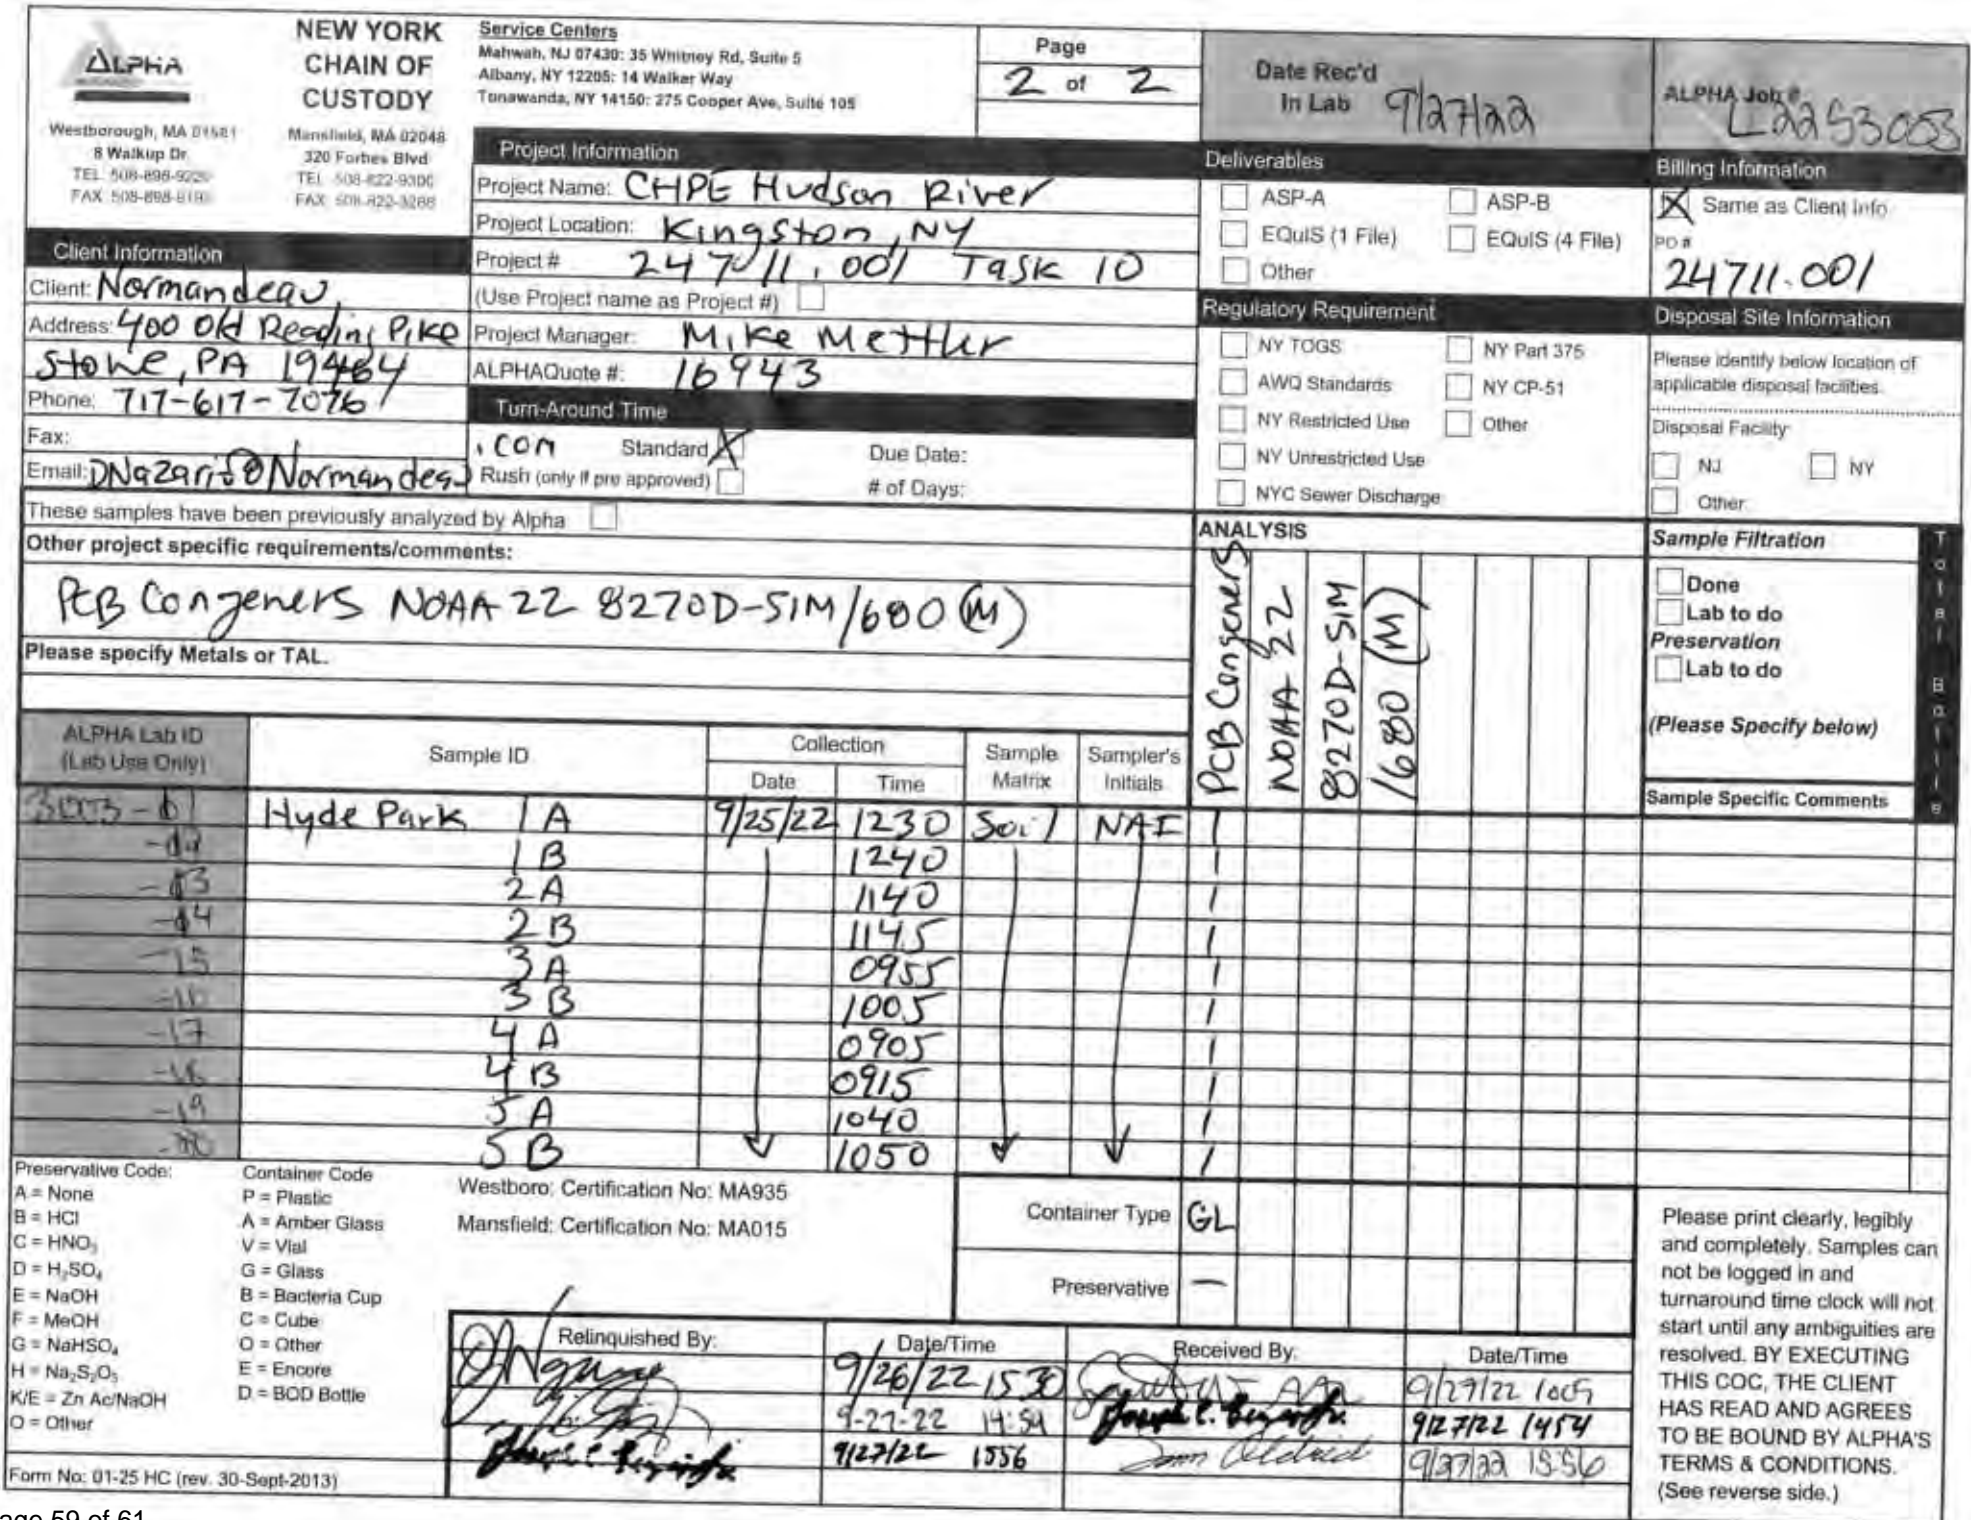 ALPHA
NEW YORK
CHAIN OF
CUSTODY
Westborough, MA 01581
8 Walkup Dr.
TEL: 508-898-9220
FAX: 508-898-9193
Mansfield, MA 02048
320 Forbes Blvd
TEL: 508-822-9300
FAX: 508-822-3288
Service Centers
Mahwah, NJ 07430: 35 Whitney Rd, Suite 5
Albany, NY 12205: 14 Walker Way
Tonawanda, NY 14150: 275 Cooper Ave, Suite 105
Page
2 of 2
Date Rec'd
In Lab 9/27/22
ALPHA Job #
L2253003
Project Information
Project Name: CHPE Hudson River
Project Location: Kingston, NY
Project # 24711.001 Task 10
(Use Project name as Project #)
Project Manager: Mike Mettler
ALPHAQuote #: 16943
Deliverables
ASP-A ASP-B
EQuIS (1 File) EQuIS (4 File)
Other
Billing Information
Same as Client Info
PO #
24711.001
Client Information
Client: Normandeau
Address: 400 Old Reading Pike
Stowe, PA 19464
Phone: 717-617-7076
Fax:
Email: DNazarit@Normandeau
.com
Turn-Around Time
Standard X Due Date:
Rush (only if pre approved) # of Days:
Regulatory Requirement
NY TOGS NY Part 375
AWQ Standards NY CP-51
NY Restricted Use Other
NY Unrestricted Use
NYC Sewer Discharge
Disposal Site Information
Please identify below location of
applicable disposal facilities.
Disposal Facility:
NJ NY
Other:
These samples have been previously analyzed by Alpha
Other project specific requirements/comments:
PCB Congeners NOAA 22 8270D-SIM/680 (M)
Please specify Metals or TAL.
ANALYSIS
PCB Congeners
NOAA 22
8270D-SIM
/680 (M)
Sample Filtration
Done
Lab to do
Preservation
Lab to do
(Please Specify below)
Total Bottle
ALPHA Lab ID
(Lab Use Only)
Sample ID
Collection
Date Time
Sample
Matrix
Sampler's
Initials
Sample Specific Comments
Hyde Park 1A 9/25/22 1230 Soil NAI 1
1B 1240 1
2A 1140 1
2B 1145 1
-15 3A 0955 1
-16 3B 1005 1
-17 4A 0905 1
-18 4B 0915 1
-19 5A 1040 1
5B 1050 1
Preservative Code:
A = None
B = HCl
C = HNO₃
D = H₂SO₄
E = NaOH
F = MeOH
G = NaHSO₄
H = Na₂S₂O₃
K/E = Zn Ac/NaOH
O = Other
Container Code
P = Plastic
A = Amber Glass
V = Vial
G = Glass
B = Bacteria Cup
C = Cube
O = Other
E = Encore
D = BOD Bottle
Westboro: Certification No: MA935
Mansfield: Certification No: MA015
Container Type GL
Preservative —
Relinquished By: Date/Time Received By: Date/Time
9/26/22 1530 9/27/22 1009
9-27-22 14:54 9/27/22 1454
9/27/22 1556 9/27/22 15:56
Please print clearly, legibly
and completely. Samples can
not be logged in and
turnaround time clock will not
start until any ambiguities are
resolved. BY EXECUTING
THIS COC, THE CLIENT
HAS READ AND AGREES
TO BE BOUND BY ALPHA'S
TERMS & CONDITIONS.
(See reverse side.)
Form No: 01-25 HC (rev. 30-Sept-2013)